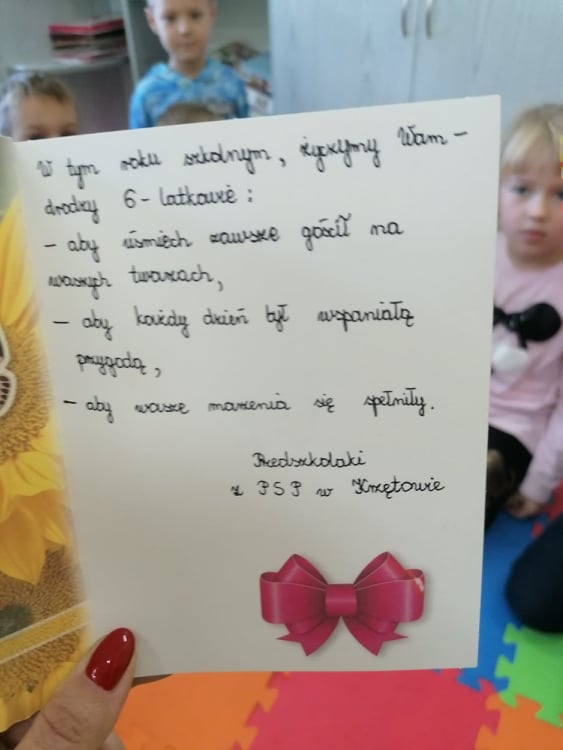 W tym roku szkolnym, życzymy Wam -
drodzy 6-latkowie:
- aby uśmiech zawsze gościł na
waszych twarzach,
- aby każdy dzień był wspaniałą
przygodą,
- aby wasze marzenia się spełniły.
Przedszkolaki
z PSP w Krzętowie